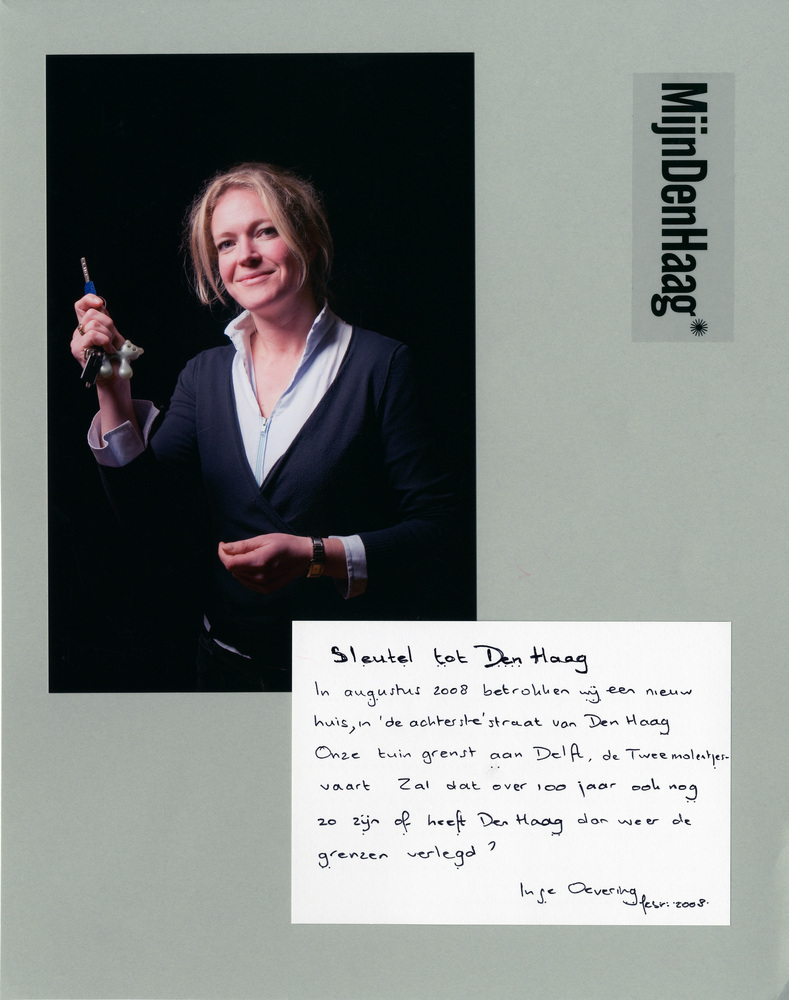 MijnDenHaag*
Sleutel tot Den Haag
In augustus 2008 betrokken wij een nieuw
huis, in 'de achterste' straat van Den Haag
Onze tuin grenst aan Delft, de Tweemolentjes-
vaart Zal dat over 100 jaar ook nog
zo zijn of heeft Den Haag dan weer de
grenzen verlegd?
Inge Oevering
febr. 2008.